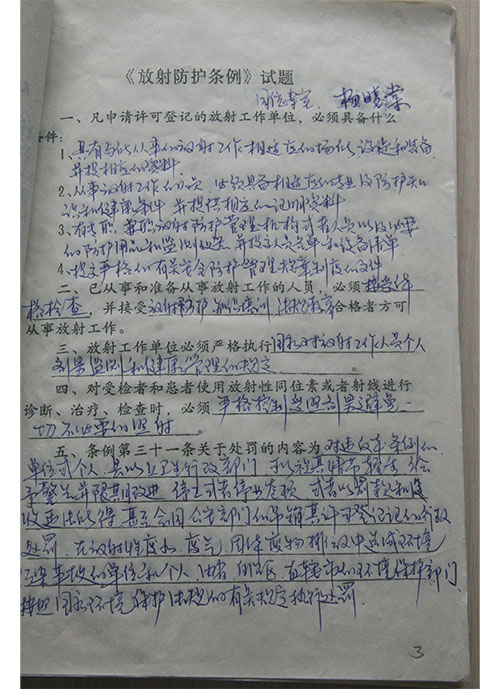 《放射防护条例》试题
同位素室 杨晓棠
一、凡申请许可登记的放射工作单位，必须具备什么
条件：
1、具有与所从事的放射工作相适应的场所设施和装备
并提相应的资料
2、从事放射工作的人员 必须具备相适应的专业及防护知
识和健康条件 并提供相应的证明资料
3、有专职、兼职放射防护管理机构或者人员以及必要
的防护用品和监测仪器、并提交人员名单和设备清单
4、提交严格的有关安全防护管理规章制度的文件
二、已从事和准备从事放射工作的人员，必须接受体
格检查，并接受放射防护知识培训 法规教育合格者方可
从事放射工作。
三、放射工作单位必须严格执行国家对放射工作人员个人
剂量监测和健康管理的规定。
四、对受检者和患者使用放射性同位素或者射线进行
诊断、治疗、检查时，必须严格控制受照剂量避免一
切不必要的照射。
五、条例第三十一条关于处罚的内容为对违反本条例的
单位或个人 县以上卫生行政部门 可以视其情节轻重 给
予警告并限期改进 停工或者停业整顿 或者以罚款和没
收违法所得 甚至会同公安部门吊销其许可登记证的行政
处罚 在放射性废水、废气、固体废物排放中造成环境
污染事故的单位和个人 由省、自治区、直辖市的环境保护部门
按照国家环境保护法规的有关规定执行处罚.
3